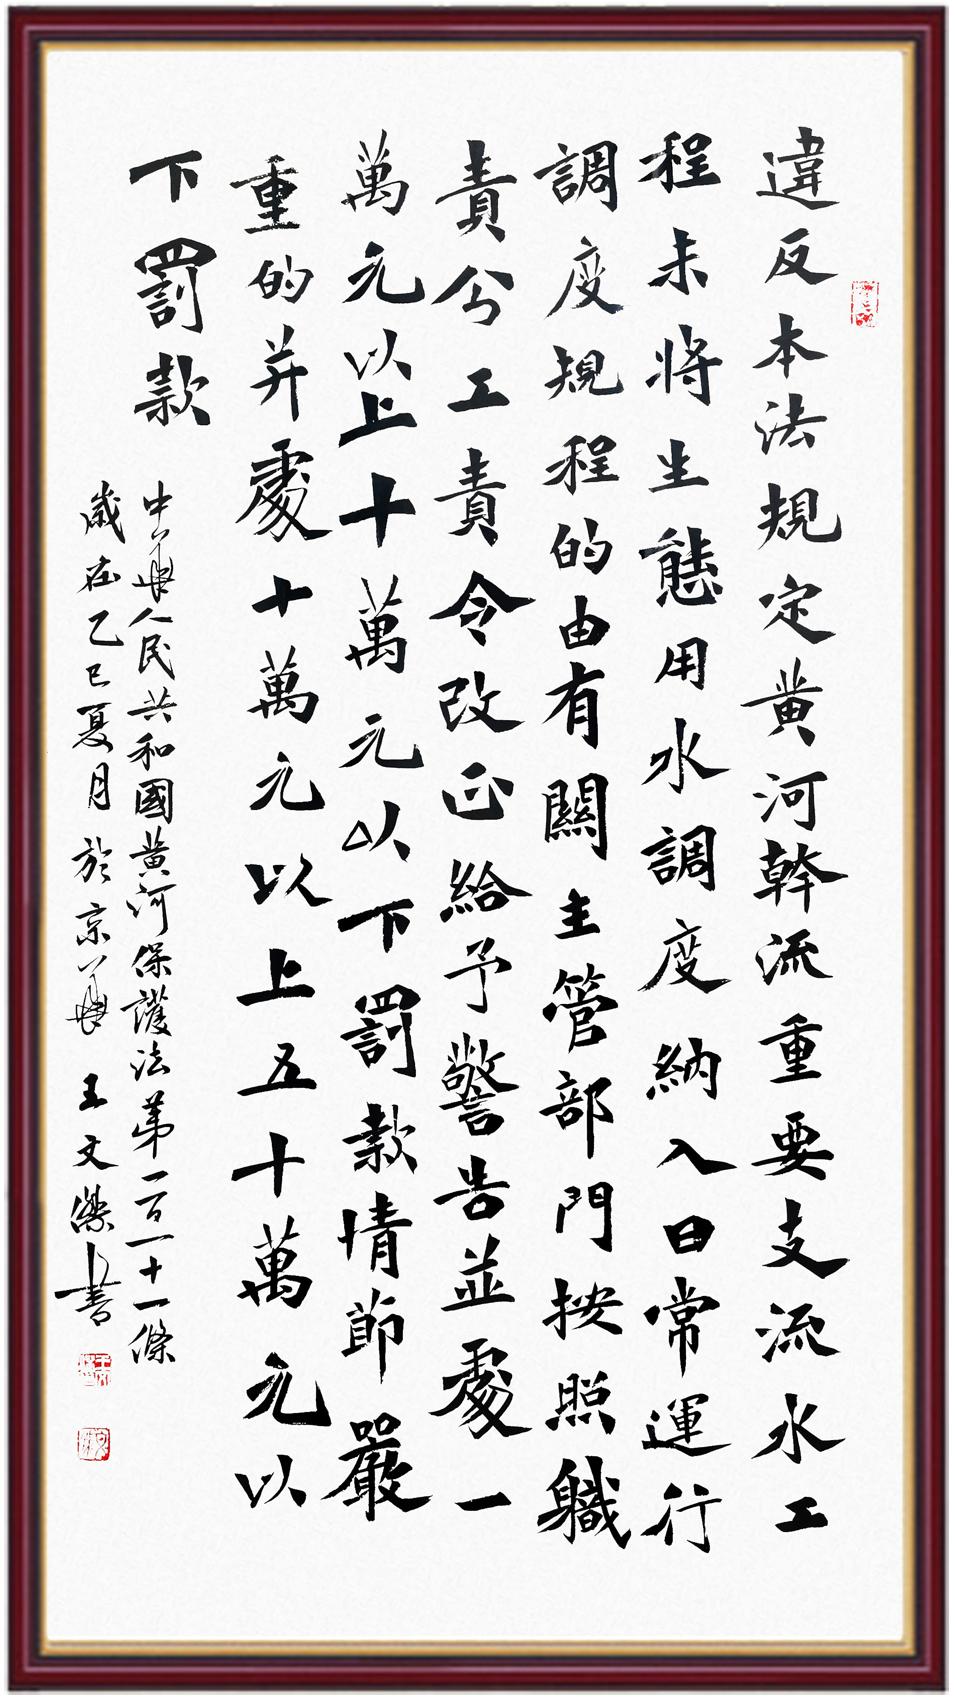 違反本法規定黄河幹流重要支流水工
程未將生態用水調度納入日常運行
調度規程的由有關主管部門按照職
責兮工責令改正給予警告並處一
萬元以上十萬元以下罰款情節嚴
重的并處十萬元以上五十萬元以
下罰款
中華人民共和國黄河保護法第一百一十一條
歲在乙巳夏月於京華王文傑書